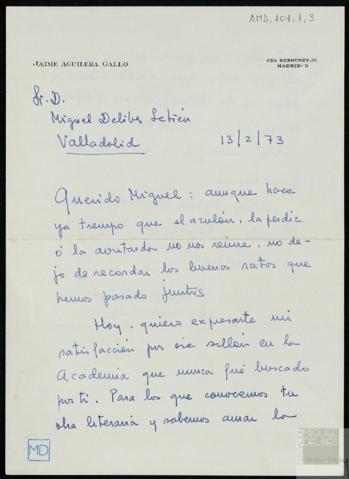 AMD, 101, 1, 3
JAIME AGUILERA GALLO
CEA BERMUDEZ,
MADRID-3
Sr. D.
Miguel Delibes Setién
Valladolid
13/2/73
Querido Miguel: aunque hace
ya tiempo que el azulón, la perdiz
ó la avutarda no nos reune, no de-
jo de recordar los buenos ratos que
hemos pasado juntos
Hoy, quiero expresarte mi
satisfacción por ese sillón en la
Academia que nunca fué buscado
por ti. Para los que conocemos tu
obra literaria y sabemos amar la
MD